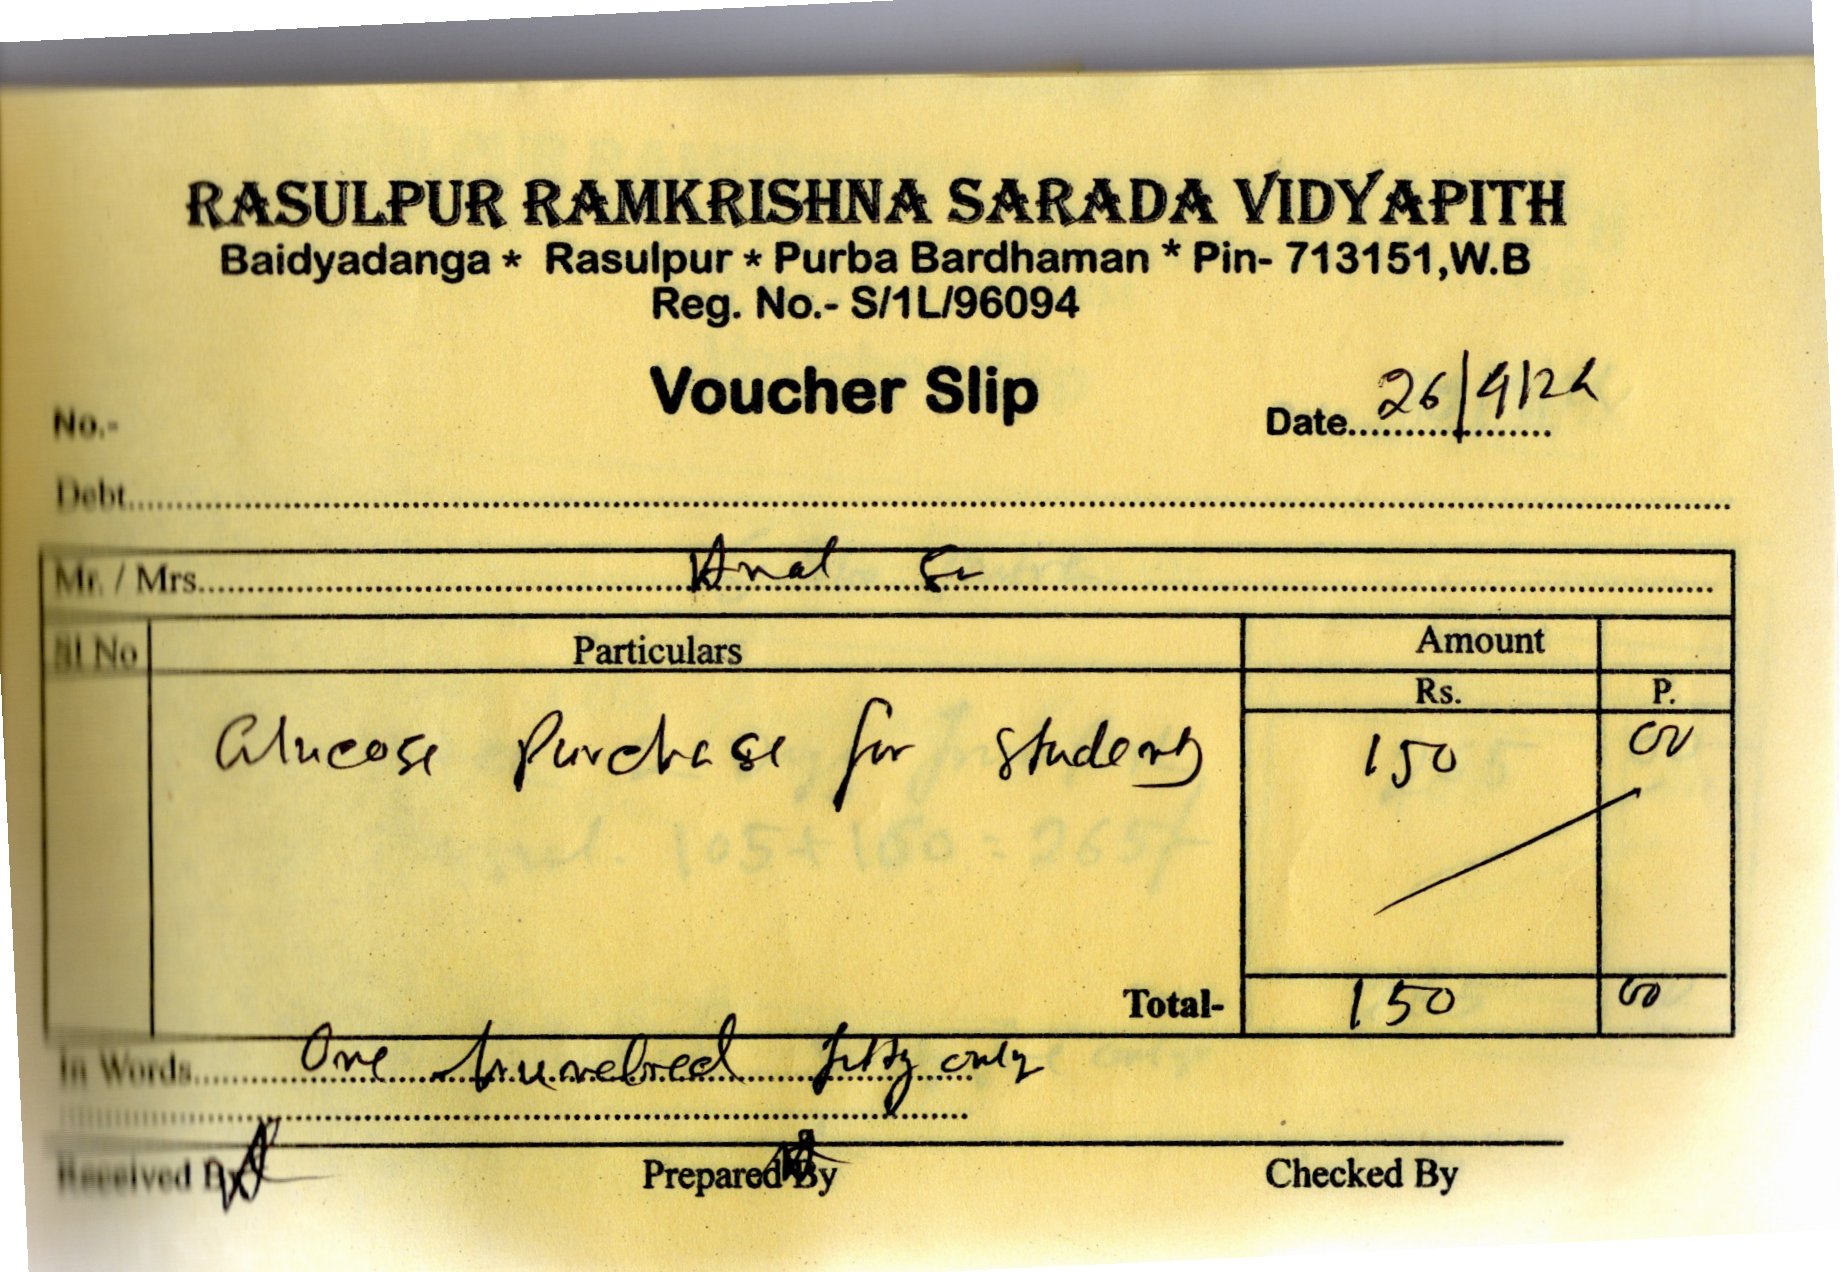 RASULPUR RAMKRISHNA SARADA VIDYAPITH
Baidyadanga * Rasulpur * Purba Bardhaman * Pin- 713151,W.B
Reg. No.- S/1L/96094
Voucher Slip
No.-
Date 26/9/22
Debt
Mr. / Mrs.
Sl No Particulars Amount
Rs. P.
Glucose Purchase for students 150 00
Total- 150 00
In Words One hundred fifty only
Received By Prepared By Checked By